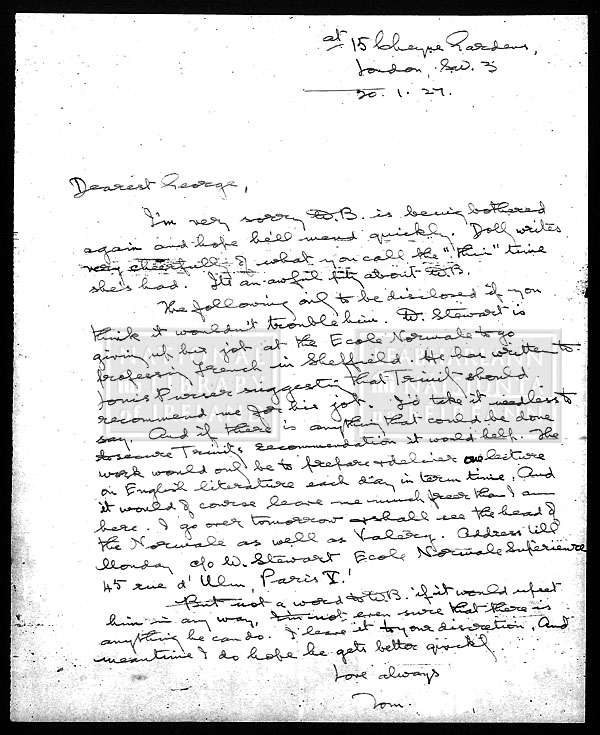 at 15 Cheyne Gardens,
London, S.W. 3
20. 1. 27.
Dearest George,
I'm very sorry W.B. is being bothered
again and hope he'll mend quickly. Dolly writes
very cheerfully of what you call the "thin" time
she's had. It's an awful pity about W.B.
The following only to be disclosed if you
think it wouldn't trouble him. W. Stewart is
giving up his job at the Ecole Normale to go
professing French in Sheffield. He has written to
Louis Purser suggesting that Trinity should
recommend me for his job. I'd take it needless to
say. And if there is anything that could be done
to secure Trinity's recommendation it would help. The
work would only be to prepare & deliver one lecture
on English literature each day in term time. And
it would of course leave me much freer than I am
here. I go over tomorrow & shall see the head of
the Normale as well as Valery. Address till
Monday c/o W. Stewart Ecole Normale Superieure
45 rue d'Ulm, Paris V.
But not a word to W.B. if it would upset
him in any way. I'm not even sure that there is
anything he can do. I leave it to your discretion. And
meantime I do hope he gets better quickly
Love always
Tom.
NATIONAL
LIBRARY
of IRELAND
LEABHARLANN
NÁISIÚNTA
na hÉIREANN